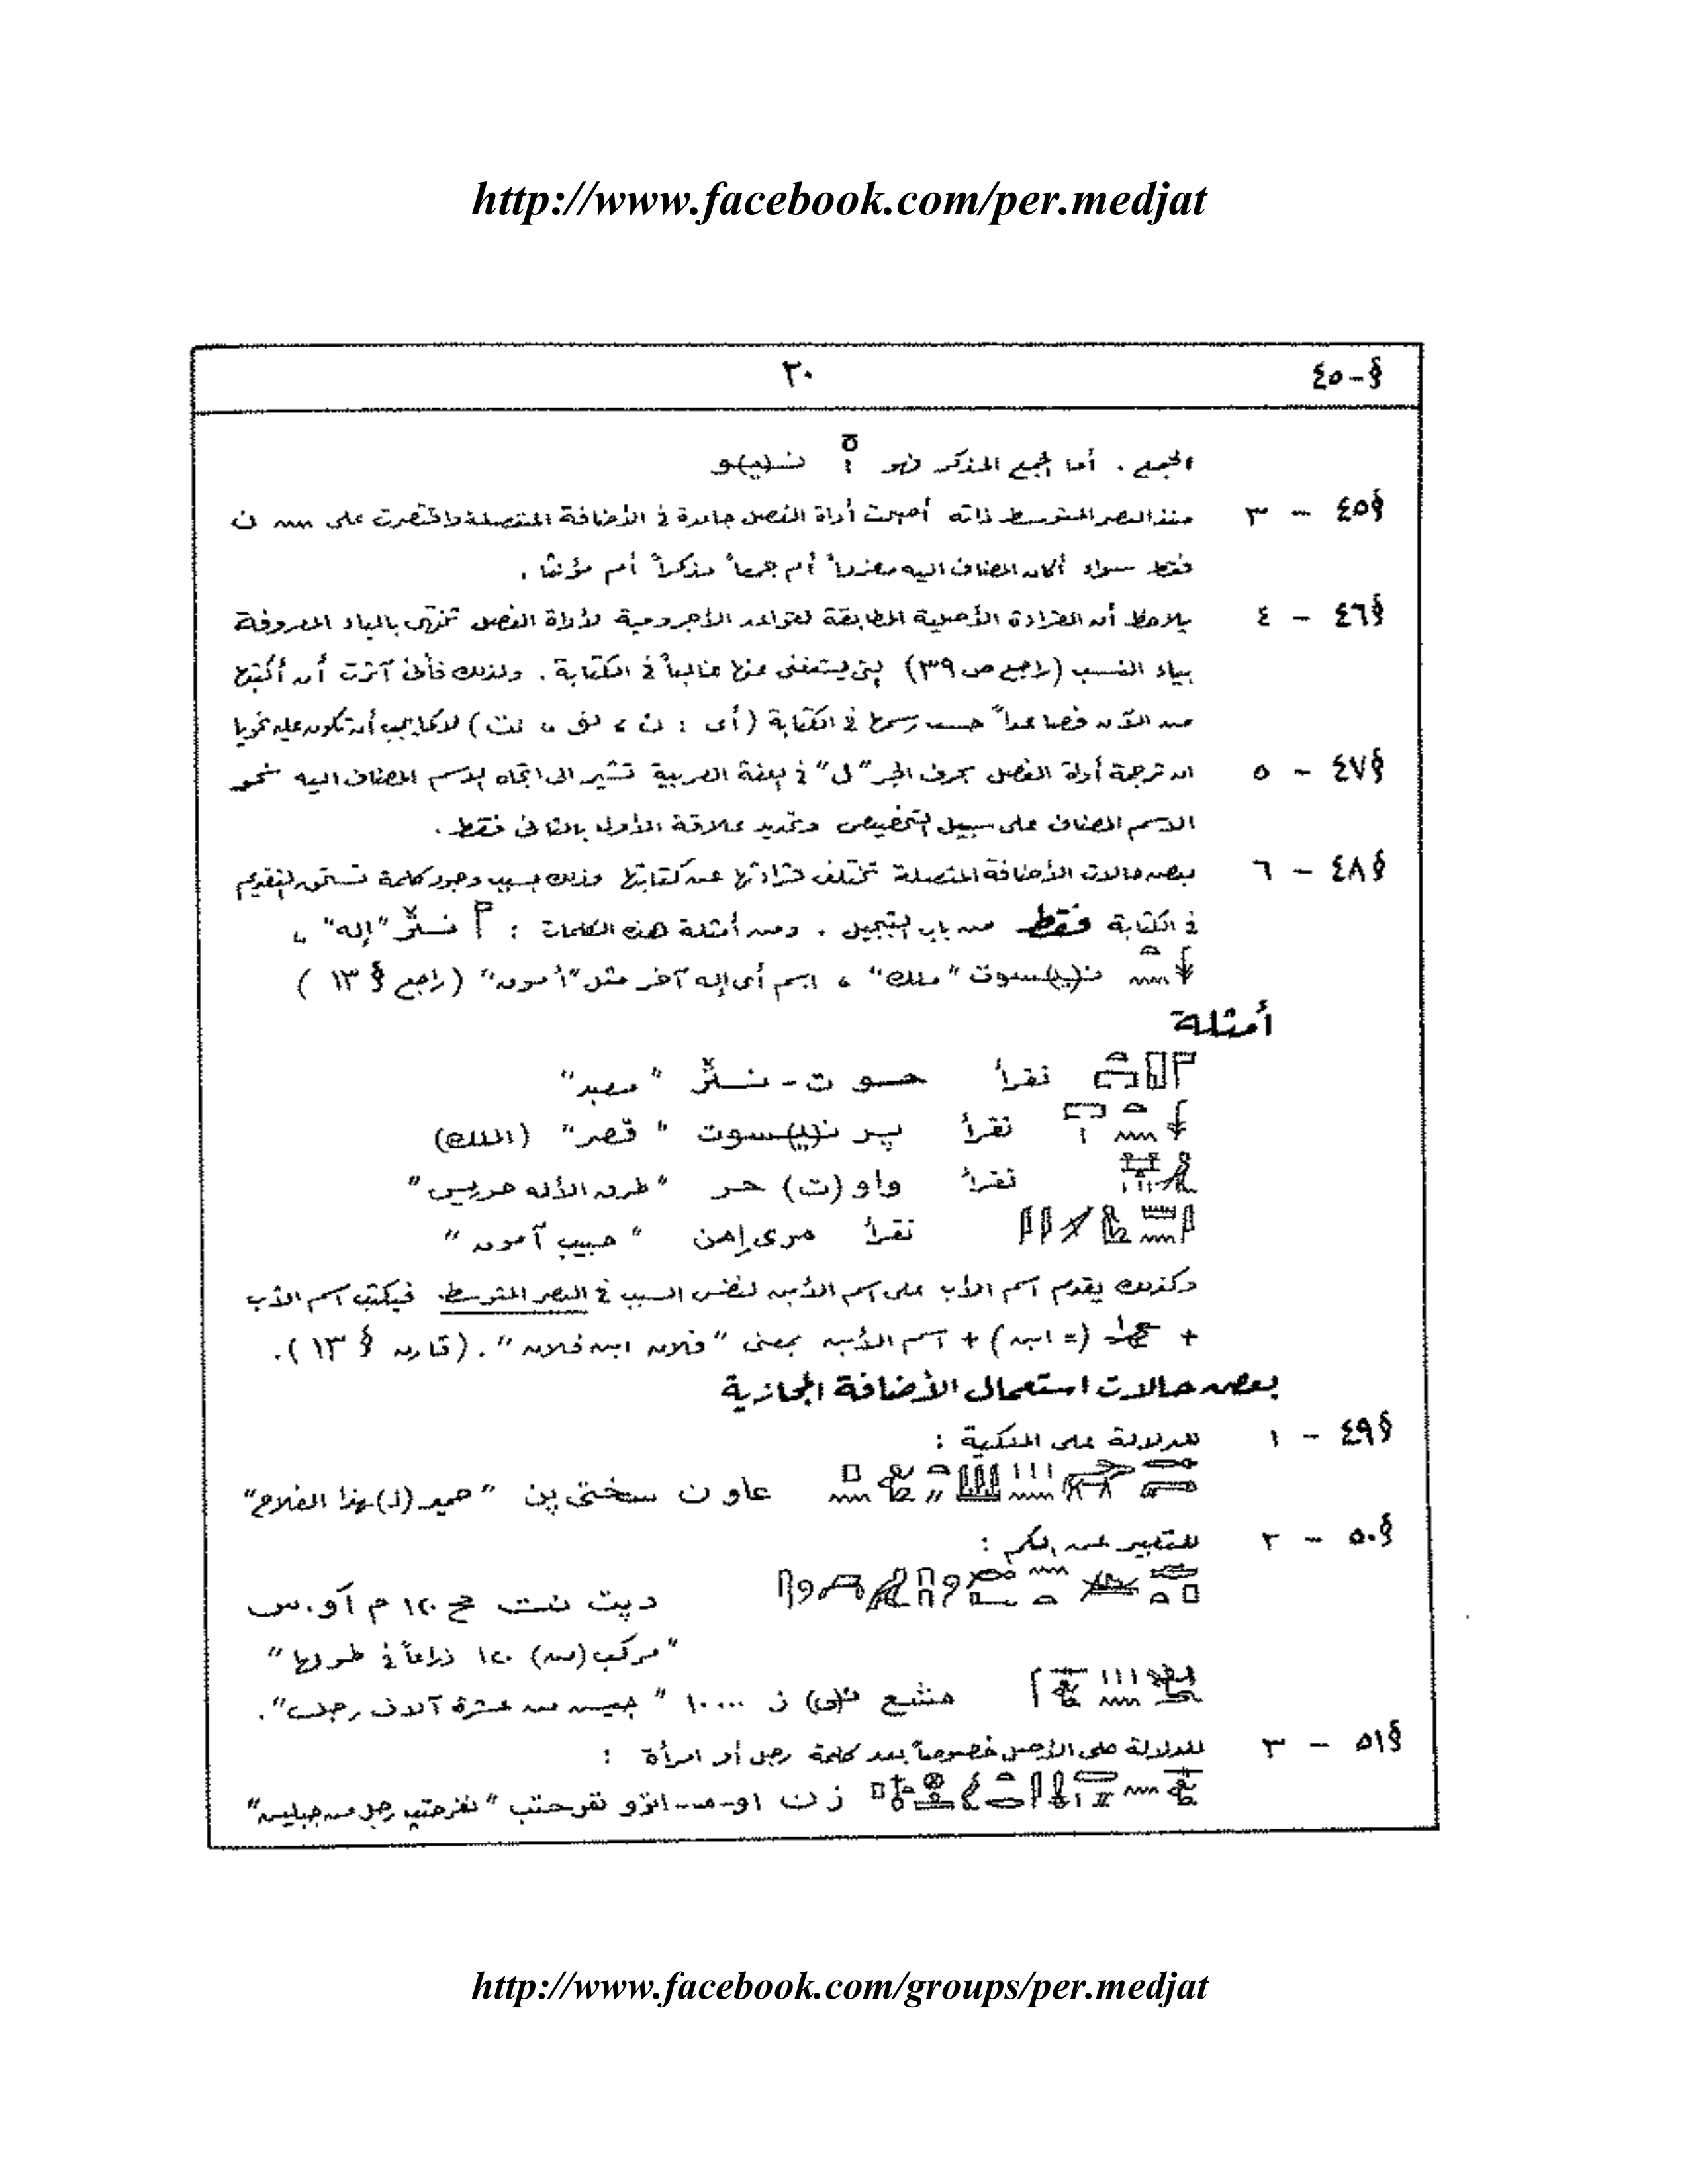 http://www.facebook.com/per.medjat
§-٤٥ ٣٠
الجمع . أما الجمع المذكر فهو ن(ي)و
§٤٥ - ٣ منذ العصر المتوسط ذاته أصبحت أداة الفصل جامدة فى الأضافة المتصلة واقتصرت على ن
فقط سواء أكان المضاف اليه مفرداً أم جمعاً مذكراً أم مؤنثا .
§٤٦ - ٤ يلاحظ أن القراءة الأصلية المطابقة لقواعد الأجرومية لأداة الفصل تنتهى بالياء المعروفة
بياء النسب (راجع ص ٣٩) التى يستغنى عنها غالباً فى الكتابة . ولذلك فأنى آثرت أن أكتبها
من الآن فصاعداً حسب رسمها فى الكتابة (أى : ن ، نت) لا كما يجب أن تكون عليه نحويا
§٤٧ - ٥ ان ترجمة أداة الفصل بحرف الجر "ل" فى اللغة العربية تشير الى اتجاه الاسم المضاف اليه نحو
الاسم المضاف على سبيل التخصيص وتحديد علاقة الأول بالثانى فقط .
§٤٨ - ٦ بعض حالات الأضافة المتصلة تختلف قراءتها عن كتابتها وذلك بسبب وجود كلمة تستحق التقديم
فى الكتابة فقط من باب التبجيل . ومن أمثلة هذه الكلمات : 𓊹 نثر "إله" ،
𓇓𓏏𓈖 ن(ي)سوت "ملك" ، اسم أى إله آخر مثل "أمون" (راجع § ١٣ )
أمثلة
تقرأ حوت - نثر "معبد"
تقرأ پر ن(ي)سوت "قصر" (الملك)
تقرأ واو(ت) حر "طرق الأله حوريس"
تقرأ مرى إمن "حبيب آمون"
وكذلك يقدم اسم الأب على اسم الأبن لنفس السبب فى العصر المتوسط . فيكتب اسم الأب
+ (= ابن) + اسم الأبن بمعنى "فلان ابن فلان" . (قارن § ١٣) .
بعض حالات استعمال الأضافة المجازية
§٤٩ - ١ للدلالة على الملكية :
عاو ن سختى پن "حمير (لـ) هذا الفلاح"
§٥٠ - ٢ للتعبير عن الكم :
دپت نت مح ١٢٠ م آو.س
"مركب (من) ١٢٠ ذراعاً فى طولها"
مشع ن(ى) ز ١٠٠٠٠ "جيش من عشرة آلاف رجل" .
§٥١ - ٣ للدلالة على الأصل خصوصاً بعد كلمة رجل أو امرأة :
ز ن نفرحتب "نفرحتب رجل من"
http://www.facebook.com/groups/per.medjat